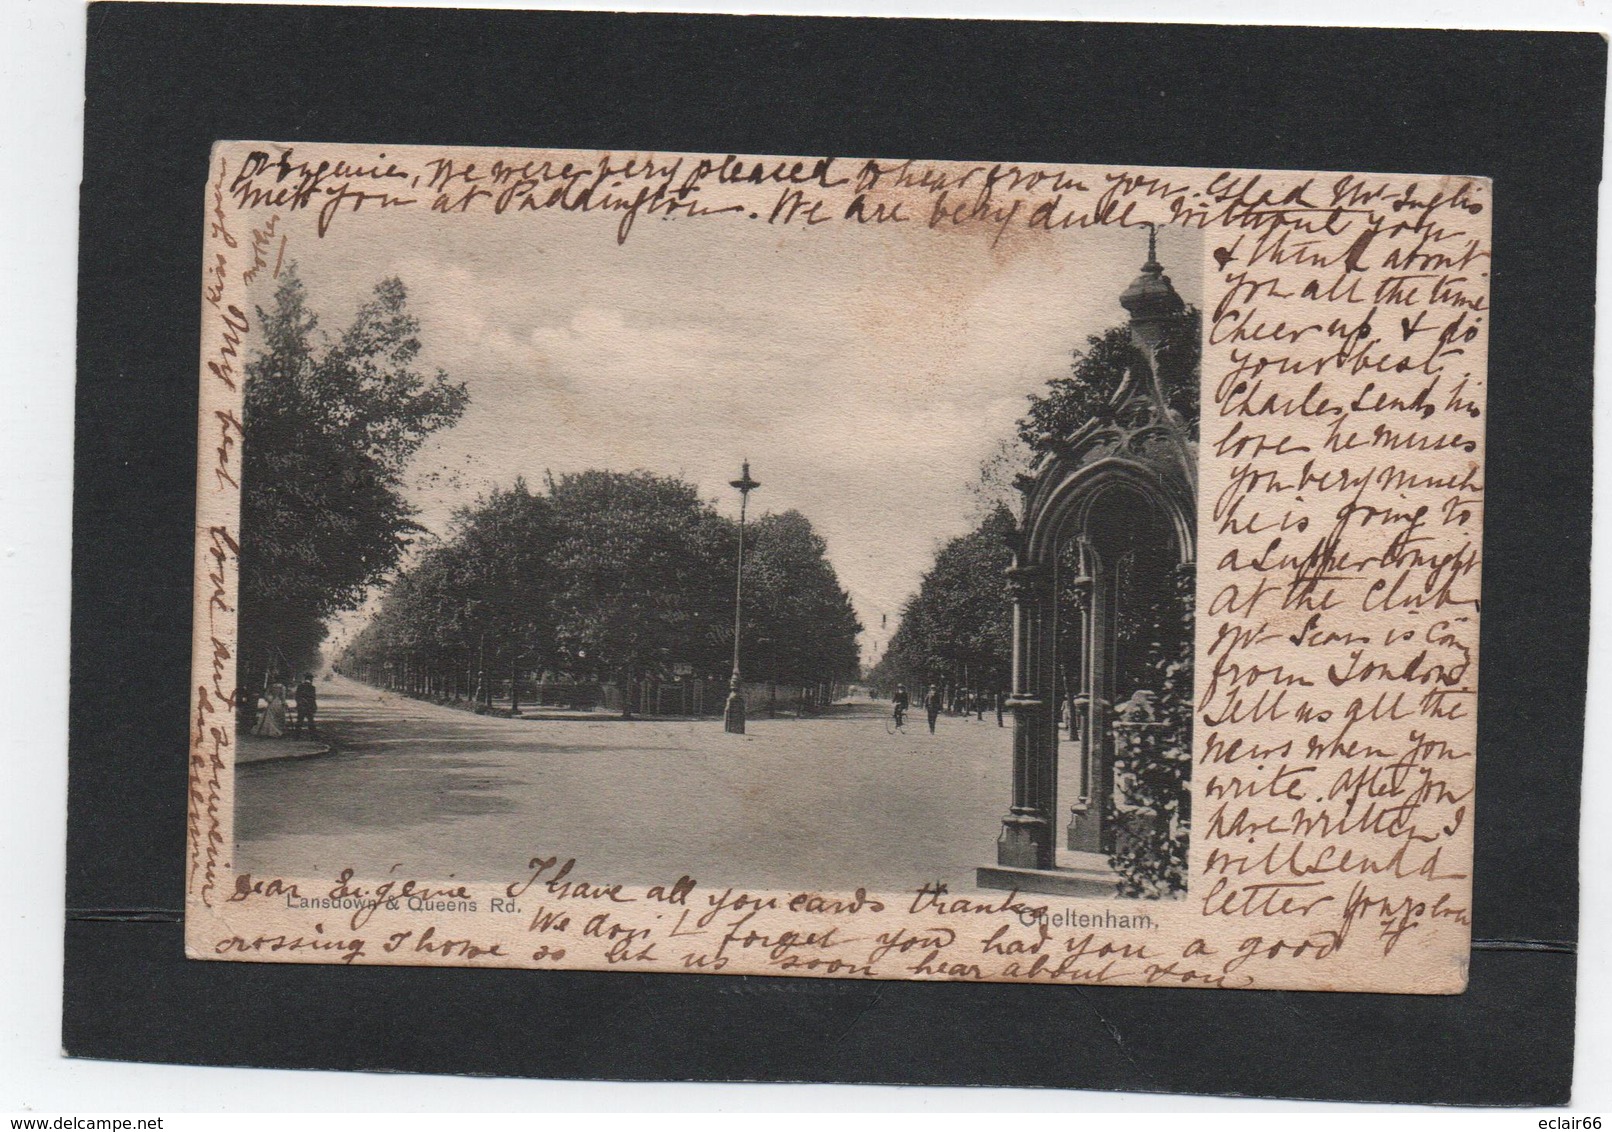 Dr Eugenie, We were very pleased to hear from you. Glad Mr Inglis
met you at Paddington. We are very dull without you
& think about
you all the time
Cheer up & do
your best.
Charles sends his
love he misses
you very much
he is going to
a Supper tonight
at the Club.
Mr Sears is
from London
Tell us all the
news when you
write. After you
have written I
will send a
letter
Dear Eugenie I have all your cards thanks
We don't forget you had you a good
crossing I hope so let us soon hear about you
My best love and souvenir
Lansdown & Queens Rd.
Cheltenham.
eclair66